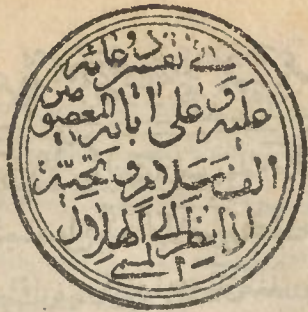 في تفسير دعائه
عليه وعلى آبائه المعصومين
الف سلام وتحية
اذا نظر الى الهلال